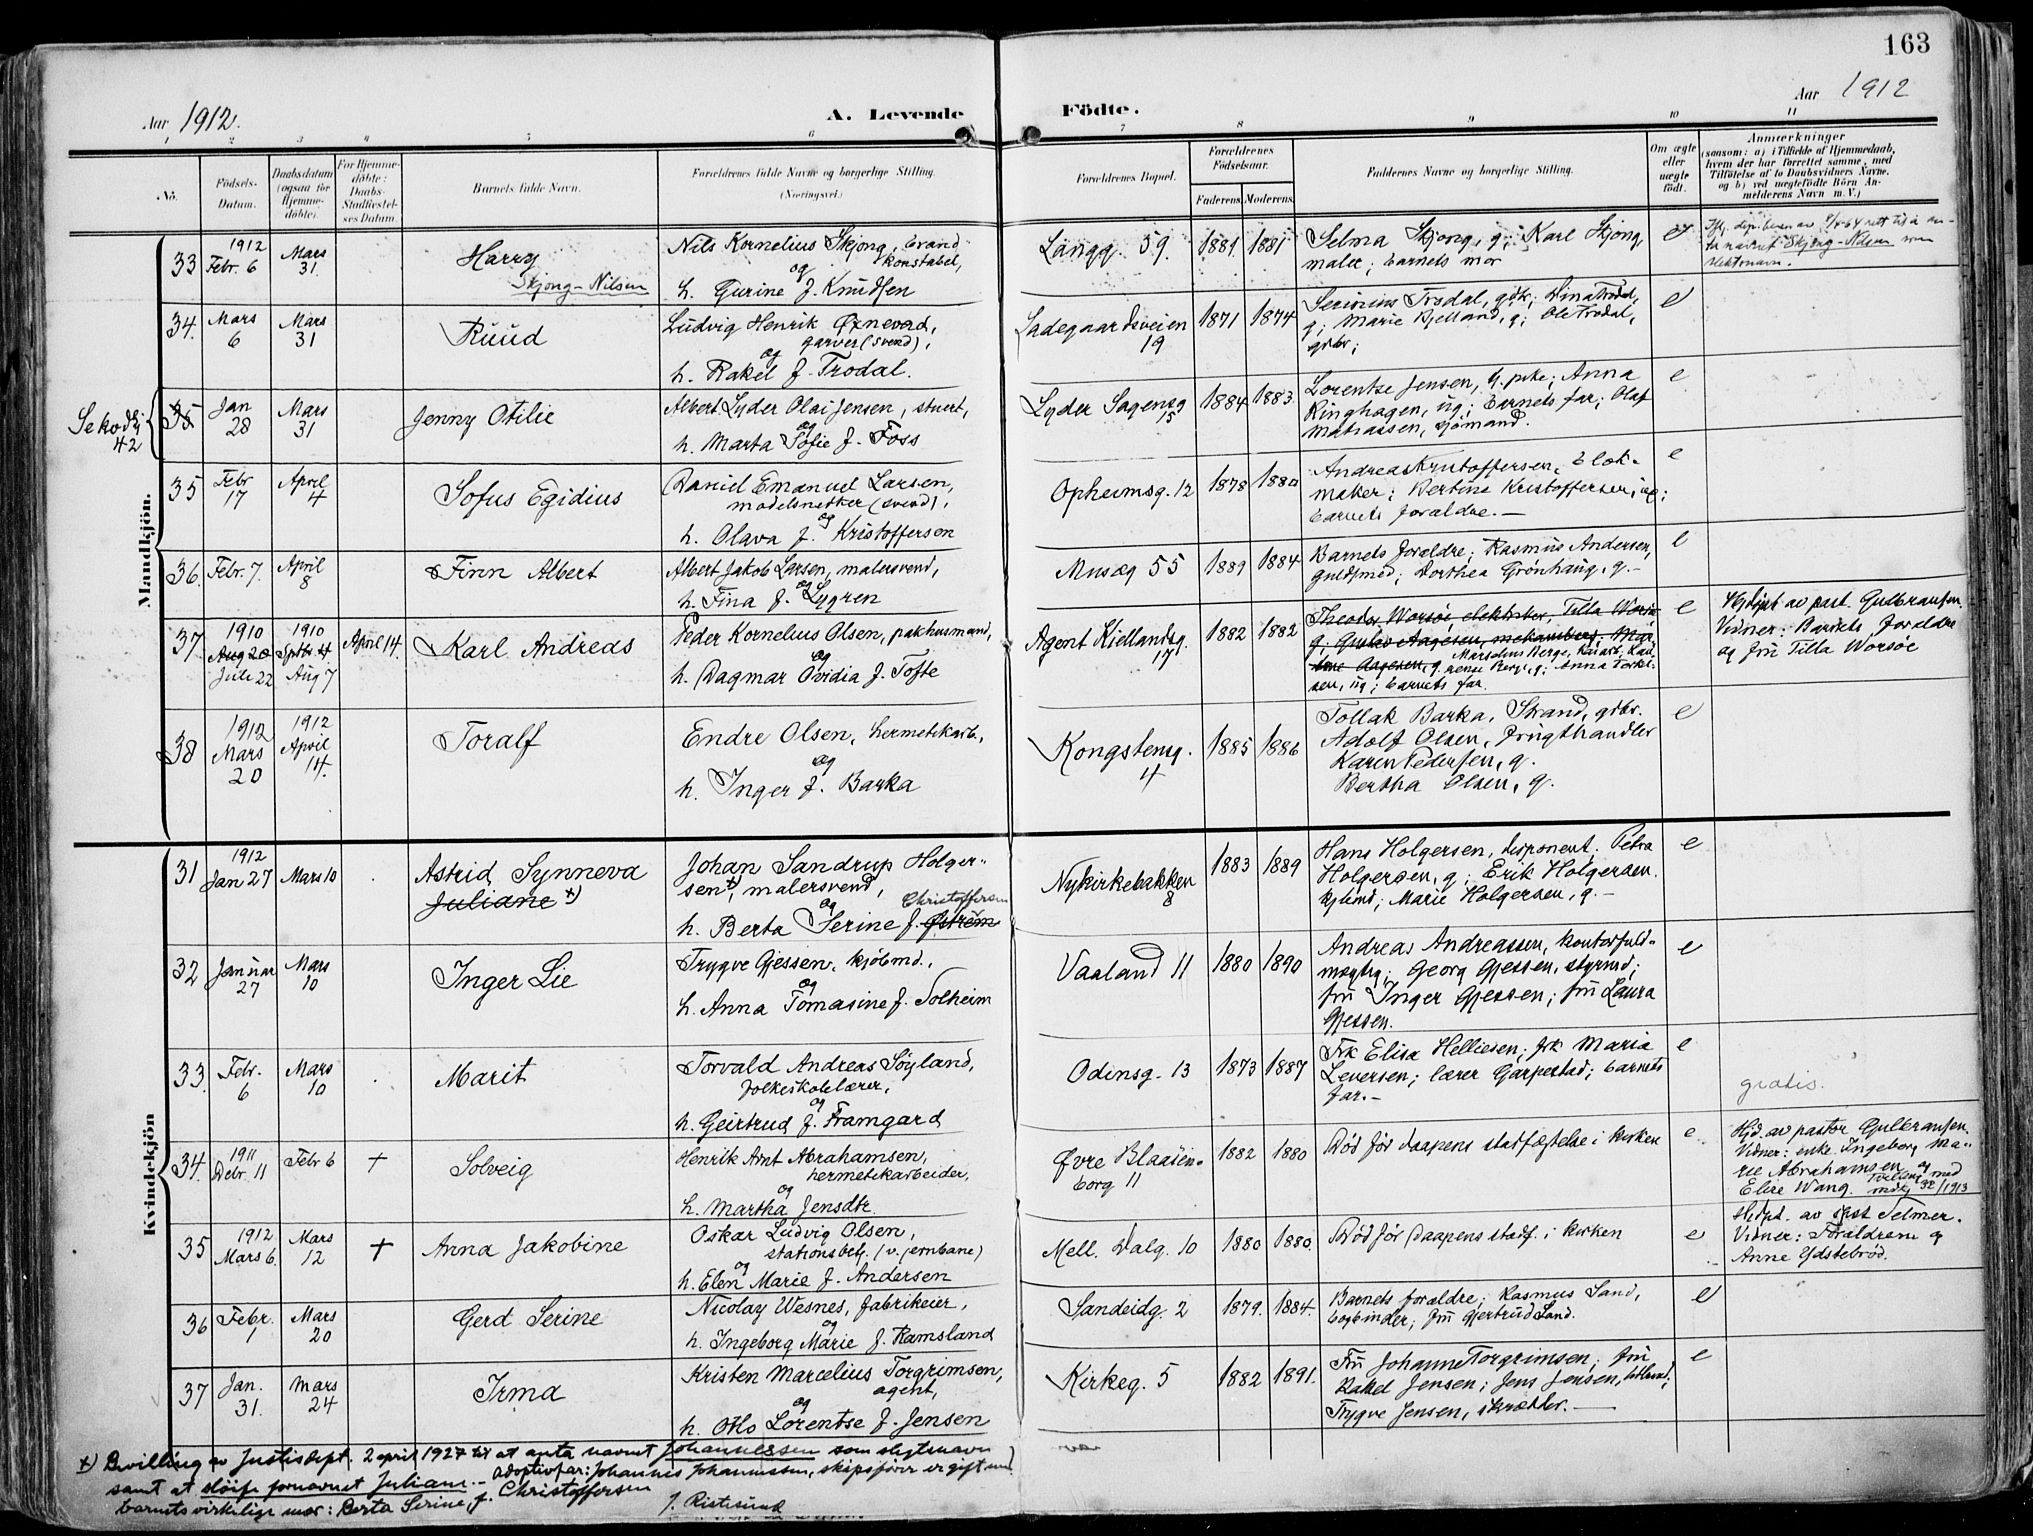 163
Aar 1912.
A. Levende
Födte.
Aar 1912
1 2 3 4 5 6 7 8 9 10 11
No.
Födsels-
Datum.
Daabsdatum
(ogsaa for
Hjemme-
döbte).
For Hjemme-
döbte:
Daabs-
Stadfæstel-
ses Datum.
Barnets fulde Navn.
Forældrenes fulde Navne og borgerlige Stilling.
(Næringsvei.)
Forældrenes Bopæl.
Forældrenes
Födselsaar.
Faderens. Moderens.
Faddernes Navne og borgerlige Stilling.
Om ægte
eller
uægte
födt.
Anmærkninger
(saasom: a) i Tilfælde af Hjemmedaab,
hvem der har forrettet samme, med
Tilföielse af to Daabsvidners Navne,
og b) ved uægtefödte Börn An-
melderens Navn m. V.)
Mandkjön.
33 1912 Febr. 6 Mars 31 Harry Skjong-Nilsen
Nils Kornelius Skjong, brand-
konstabel,
og
h. Gurine f. Knudsen
Langg. 59. 1881 1881
Selma Skjong, g; Karl Skjong,
maler; barnets mor
e
navnet Skjong-Nilsen som
slektsnavn.
34. Mars 6 Mars 31 Ruud
Ludvig Henrik Øxnevad,
garver (svend),
og
h. Rakel f. Trodal.
Ladegaardsveien
19
1871 1874
Severine Trodal, gdk; Dina Trodal,
g; Marie Bjelland, g; Ole Trodal,
gdbr;
e
Se kvdkj
42
35 Jan 28 Mars 31 Jenny Otilie
Albert Lyder Olai Jensen, stuert,
og
h. Marta Sofie f. Foss
Lyder Sagensg
15
1884 1883
Lorentse Jensen, g. pike; Anna
Ringhagen, ug; barnets far; Olaf
Mathassen, sjömand.
e
35 Febr 17 April 4 Sofus Egidius
Daniel Emanuel Larsen,
modelsnedker (svend),
og
h. Olava f. Kristoffersen
Opheimsg. 12 1878 1880
Andreas Kristoffersen, blok-
maker; Bertine Kristoffersen, ug;
barnets forældre. —
e
36. Febr. 7. April 8 Finn Albert
Albert Jakob Larsen, malersvend,
og
h. Fina f. Lygren
Musæg 55 1889 1884
Barnets forældre; Rasmus Andersen,
guldsmed; Dorthea Grønhaug, g. —
e
37. 1910 Aug 20 Juli 22 1910 Septbr 4 Aug 7 April 14. Karl Andreas
Peder Kornelius Olsen, pakhusmand,
og
h. Dagmar Ovidia f. Tofte
Agent Kiellandsg.
17
1882 1882
Theodor Worsöe, elektriker, Tilla Worsöe
g; Gustav Aagesen,
Aagesen, g. Berge, g; Anna Torki-
sen, ug; barnets far.
e
Hjdpt av past. Gulbransen.
Vidner: Barnets forældre
og fru Tilla Worsöe
38 1912 Mars 20 1912 April 14. Toralf
Endre Olsen, hermetikarb.,
og
h. Inger f. Barka
Kongstensg.
4
1885 1886
Tollak Barka, Strand, gdbr.
Adolf Olsen, frugthandler
Karen Pedersen, g.
Bertha Olsen, g.
e
Kvindekjön
31 1912 Jan 27 Mars 10 Astrid Synneva
Juliane +)
Johan Sandrup Holger-
sen +), malersvend,
og
h. Berta Serine f. Östrem Christoffersen
Nykirkebakken
8
1883 1889
Hans Holgersen, disponent. Petra
Holgersen, g; Erik Holgersen,
kjbmd; Marie Holgersen, g. —
e
32 Januar 27 Mars 10 Inger Lie
Trygve Gjessen, kjöbmd.,
og
h. Anna Tomasine f. Solheim
Vaaland 11 1880 1890
Andreas Andreassen, kontorfuld-
mægtig; Georg Gjessen, styrmd;
fru Inger Gjessen; fru Laura
Gjessen.
e
33. Febr. 6 Mars 10 Marit
Torvald Andreas Söyland,
folkeskolelærer,
og
h. Geirtrud f. Framgard
Odinsg. 13 1873 1887
Frk Elisa Helliesen; frk Maria
Leversen; lærer Garpestad; barnets
far. —
e
gratis.
34. 1911 Debr. 11 Febr 6 + Solveig
Henrik Arnt Abrahamsen,
hermetikarbeider,
og
h. Martha Jensdtr.
Øvre Blaasen-
borg 11
1882 1880
Död för daapens stadfæstelse i kirken
e
Hjd. av pastor Gulbransen.
Vidner: enke Ingeborg Ma-
rie Abrahamsen og
Elise Wang. Tvilling med
mdkj 32/1913
35 1912 Mars 6. Mars 12 + Anna Jakobine
Oskar Ludvig Olsen,
stationsbetj. (v. jernbane)
og
h. Elen Marie f. Andersen
Mell. Dalg. 10 1880 1880.
Död för daapens stadf. i kirken
e
Hjdpt. av spst Selmer.
Vidner: Forældrene og
Anne Ydstebröd.
36 Febr. 1 Mars 20 Gerd Serine
Nicolay Wesnes, fabrikeier,
og
h. Ingeborg Marie f. Ramsland
Sandeidg. 2 1879. 1884.
Barnets forældre; Rasmus Sand,
bogbinder; fru Gjertrud Sand.
e
37 Jan. 31. Mars 24 Irma
Kristen Marcelius Torgrimsen,
agent,
og
h. Otto Lorentse f. Jensen
Kirkeg. 5 1882 1891.
Fru Johanne Torgrimsen; fru
Rakel Jensen; Jens Jensen,
Trygve Jensen, skrædder. —
e
+) Bevilling av Justisdept. 2 april 1927 til at anta navnet Johannessen som slegtsnavn
samt at slöife fornavnet Juliane. — Adoptivfar: Johannes Johannessen, skipsförer er gift med
barnets virkelige mor: Berta Serine f. Christoffersen